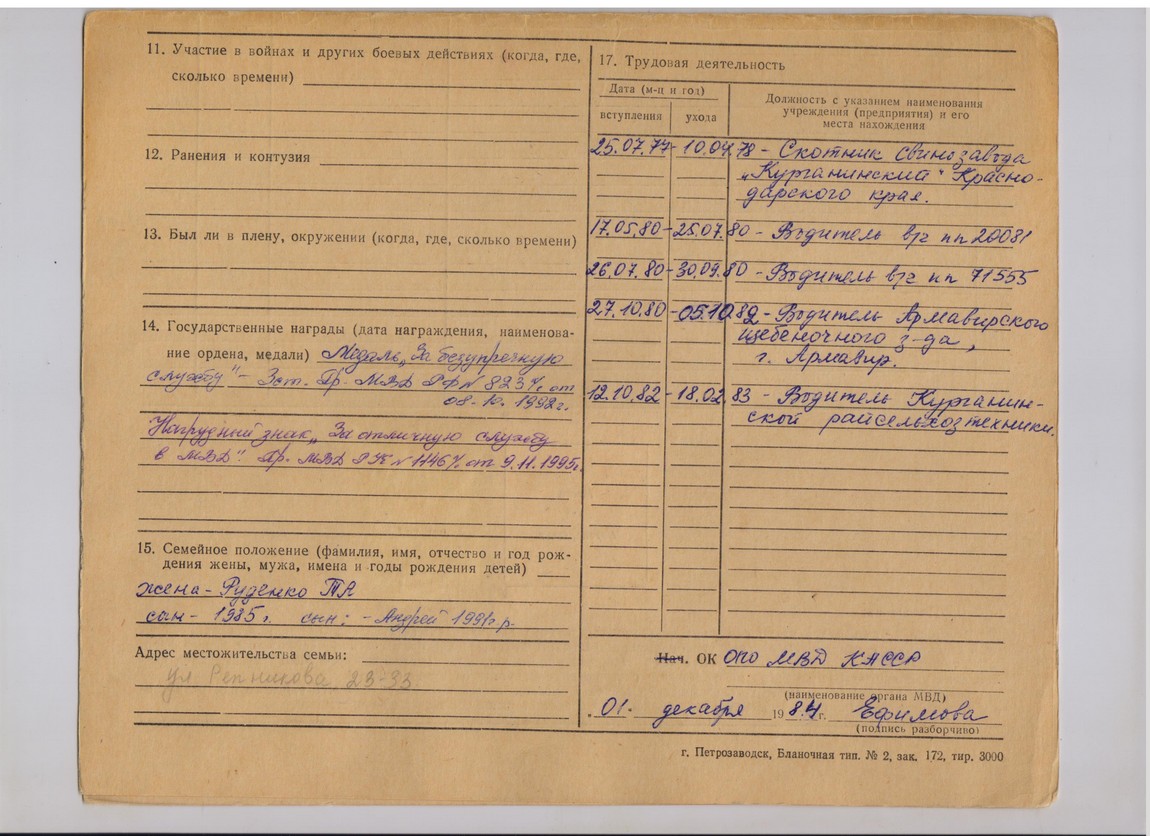 11. Участие в войнах и других боевых действиях (когда, где,
сколько времени)
12. Ранения и контузия
13. Был ли в плену, окружении (когда, где, сколько времени)
14. Государственные награды (дата награждения, наименова-
ние ордена, медали) Медаль „За безупречную
службу" - 3 ст. Пр. МВД РФ N 823 от
08.10.1992г.
Нагрудный знак „За отличную службу
в МВД". Пр. МВД РК N 1146 от 9.11.1995г.
15. Семейное положение (фамилия, имя, отчество и год рож-
дения жены, мужа, имена и годы рождения детей)
жена - Руденко ТА
сын - 1985г. сын: - Андрей 1991г р.
Адрес местожительства семьи:
ул Репникова 23-33
17. Трудовая деятельность
Дата (м-ц и год)
вступления ухода
Должность с указанием наименования
учреждения (предприятия) и его
места нахождения
25.07.77 - 10.04.78 - Скотник Свинозавода
„Курганинский" Красно-
дарского края.
17.05.80 - 25.07.80 - Водитель в/ч пп 20081
26.07.80 - 30.09.80 - Водитель в/ч пп 71555
27.10.80 - 05.10.82 - Водитель Армавирского
щебеночного з-да,
г. Армавир.
12.10.82 - 18.02.83 - Водитель Курганин-
ской райсельхозтехники.
Нач. ОК ОПО МВД КАССР
(наименование органа МВД)
„01. декабря 1984г. Ефимова
(подпись разборчиво)
г. Петрозаводск, Бланочная тип. № 2, зак. 172, тир. 3000